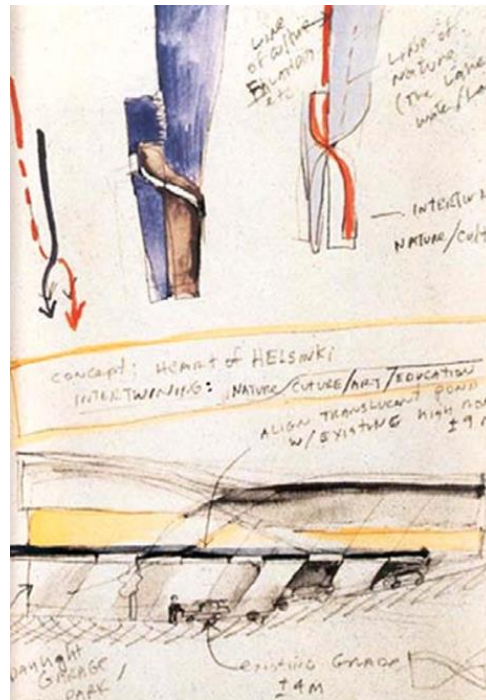 LINE
of culture
etc
LINE OF
NATURE
(THE
— INTERTW
NATURE/CULT
CONCEPT: HEART of HELSINKI
INTERTWINING: NATURE/CUTURE/ART/EDUCATION
ALIGN TRANSLUCENT POND
W/ EXISTING high
±9
Daylight
GARAGE
PARK /
EXISTING GRADE
±4M